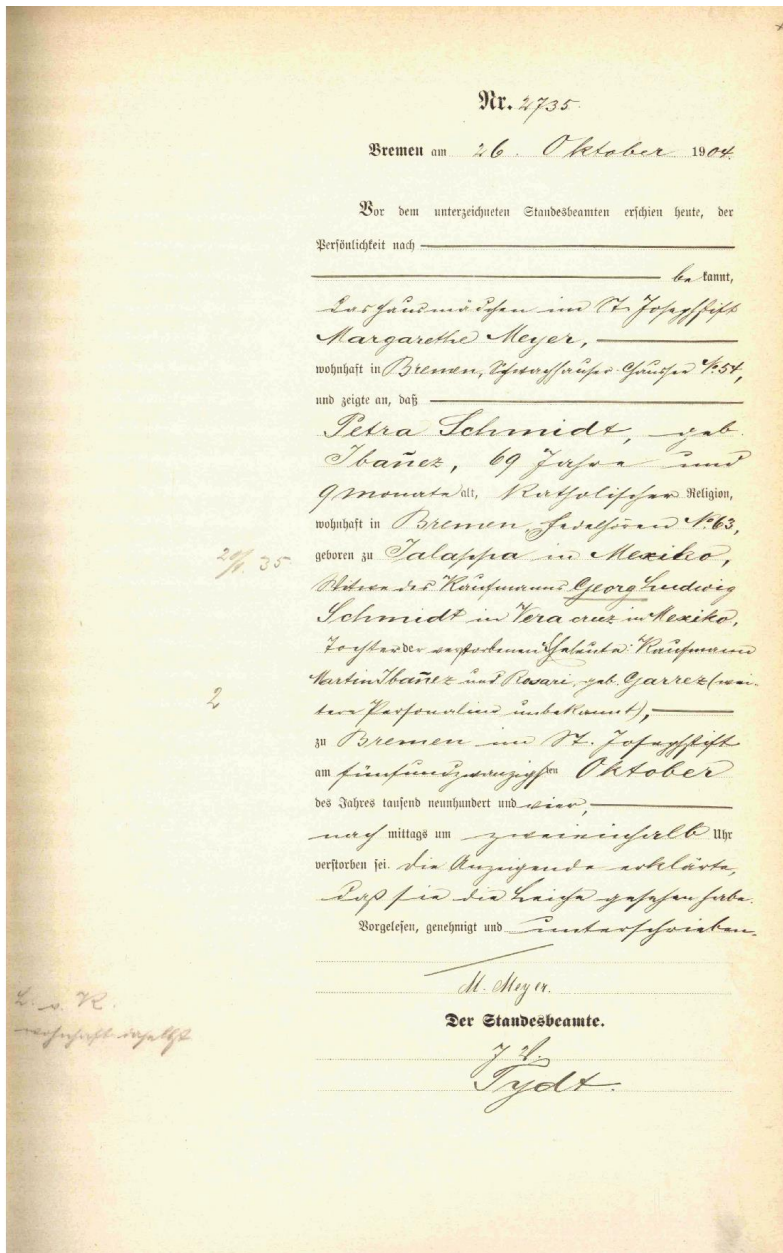 Nr. 2735.
Bremen am 26. Oktober 1904.
Vor dem unterzeichneten Standesbeamten erschien heute, der
Persönlichkeit nach
be kannt,
das Hausmädchen im St. Josephstift
Margarethe Meyer,
wohnhaft in Bremen, Schwachhauser Chaussee No. 54,
und zeigte an, daß
Petra Schmidt, geb.
Ibañez, 69 Jahre und
9 Monate alt, katholischer Religion,
wohnhaft in Bremen, Fedelhören No. 63,
geboren zu Jalappa in Mexiko,
20/1. 35
Witwe des Kaufmanns Georg Ludwig
Schmidt in Vera cruz in Mexiko,
Tochter der verstorbenen Eheleute: Kaufmann
Martin Ibañez und Rosari, geb. Garrez (wei-
2
tere Personalien unbekannt),
zu Bremen im St. Josephstift
am fünfundzwanzigsten Oktober
des Jahres tausend neunhundert und vier,
nach mittags um zweieinhalb Uhr
verstorben sei. Die Anzeigende erklärte,
daß sie die Leiche gesehen habe.
Vorgelesen, genehmigt und unterschrieben.
M. Meyer.
L. v. K.
wohnhaft daselbst
Der Standesbeamte.
J. V.
Tydt.